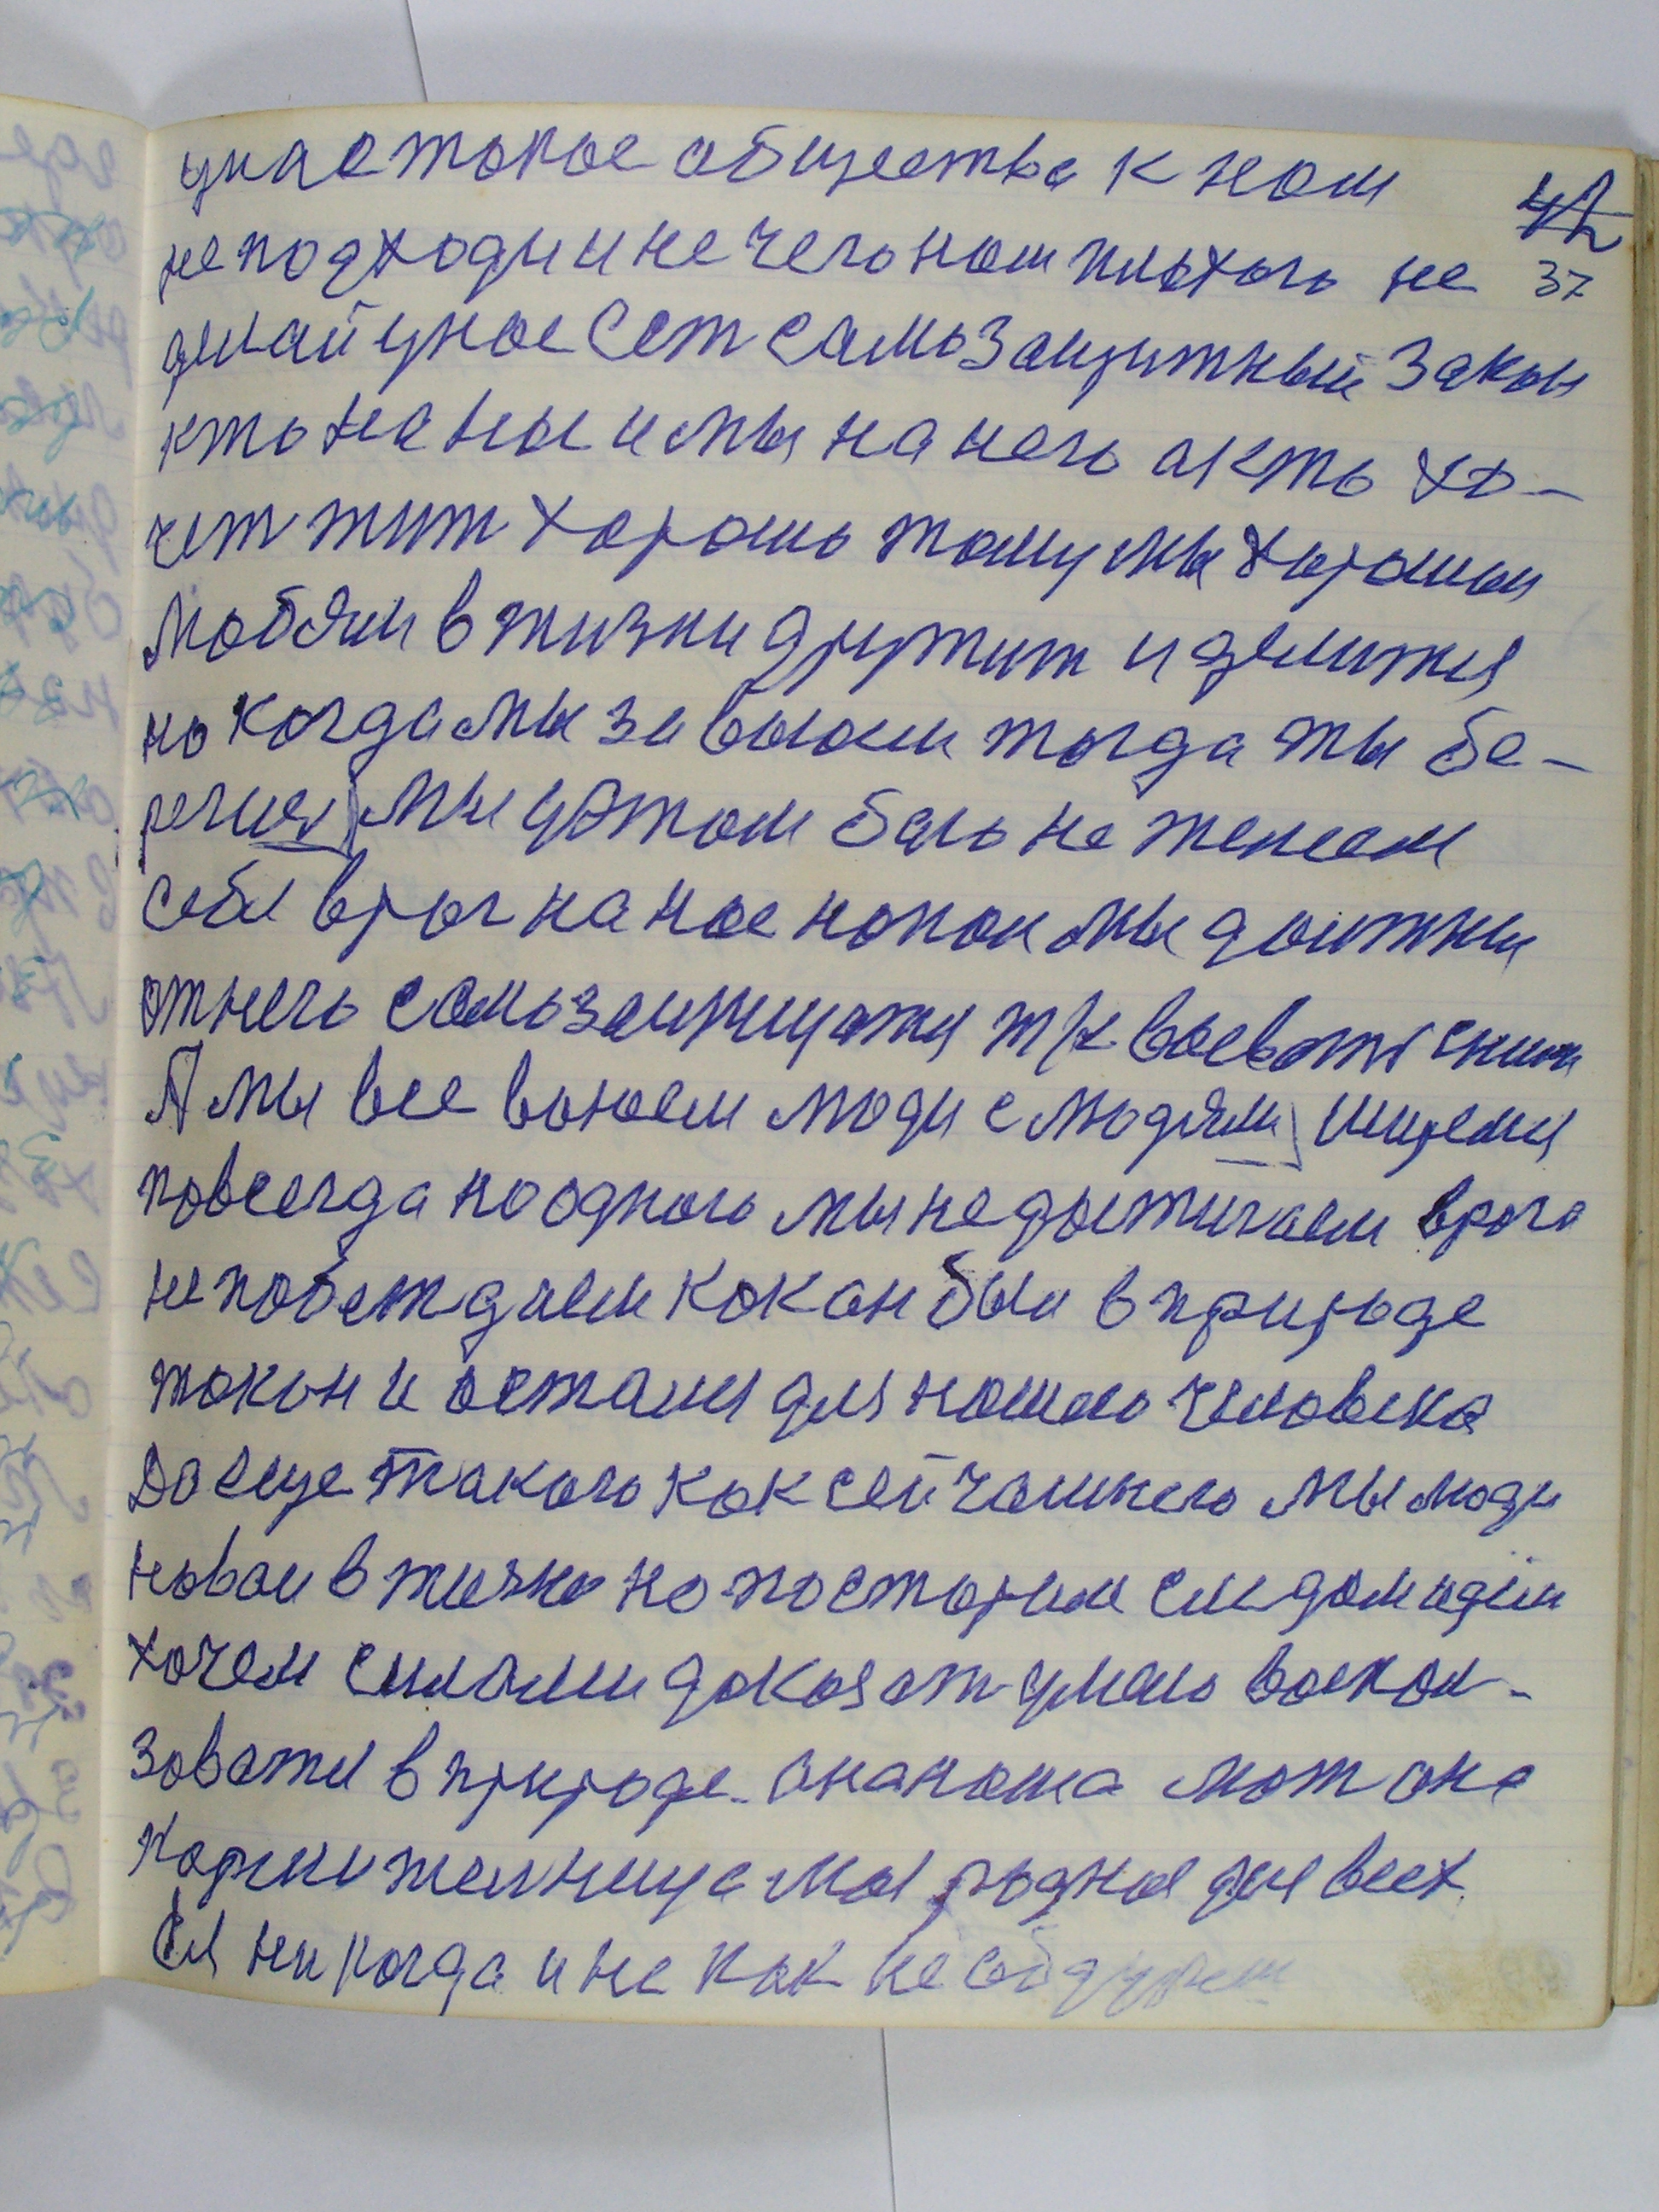 унас токое обществе к ном
42
не подходи и не чего ном плохого не
37
делай унос Сет само защитный Закон
кто на ны и мы на него а кто хо-
чет жит хорошо тому мы хорошом
любями в жизни дружит и делится
но когда мы зоволом тогда ты бе-
регися мы у этом богь не желаем
себя врог на нос нопол мы должны
от него само защищатся т/к воеват сним
А мы все воюем люди с людями ищемся
повсегда но одного мы не достигаем врога
не побеждаем кок он был в природе
токон и остался для нашего человека
До еще такого кок сейчашнего мы люди
новои в жизне но по старым следом идем
хочем силами доказат умело восполь-
зоватся в природе. она ноша мот она
кормителница мы родная для всех
Ея ни когда и не как не обдуреш